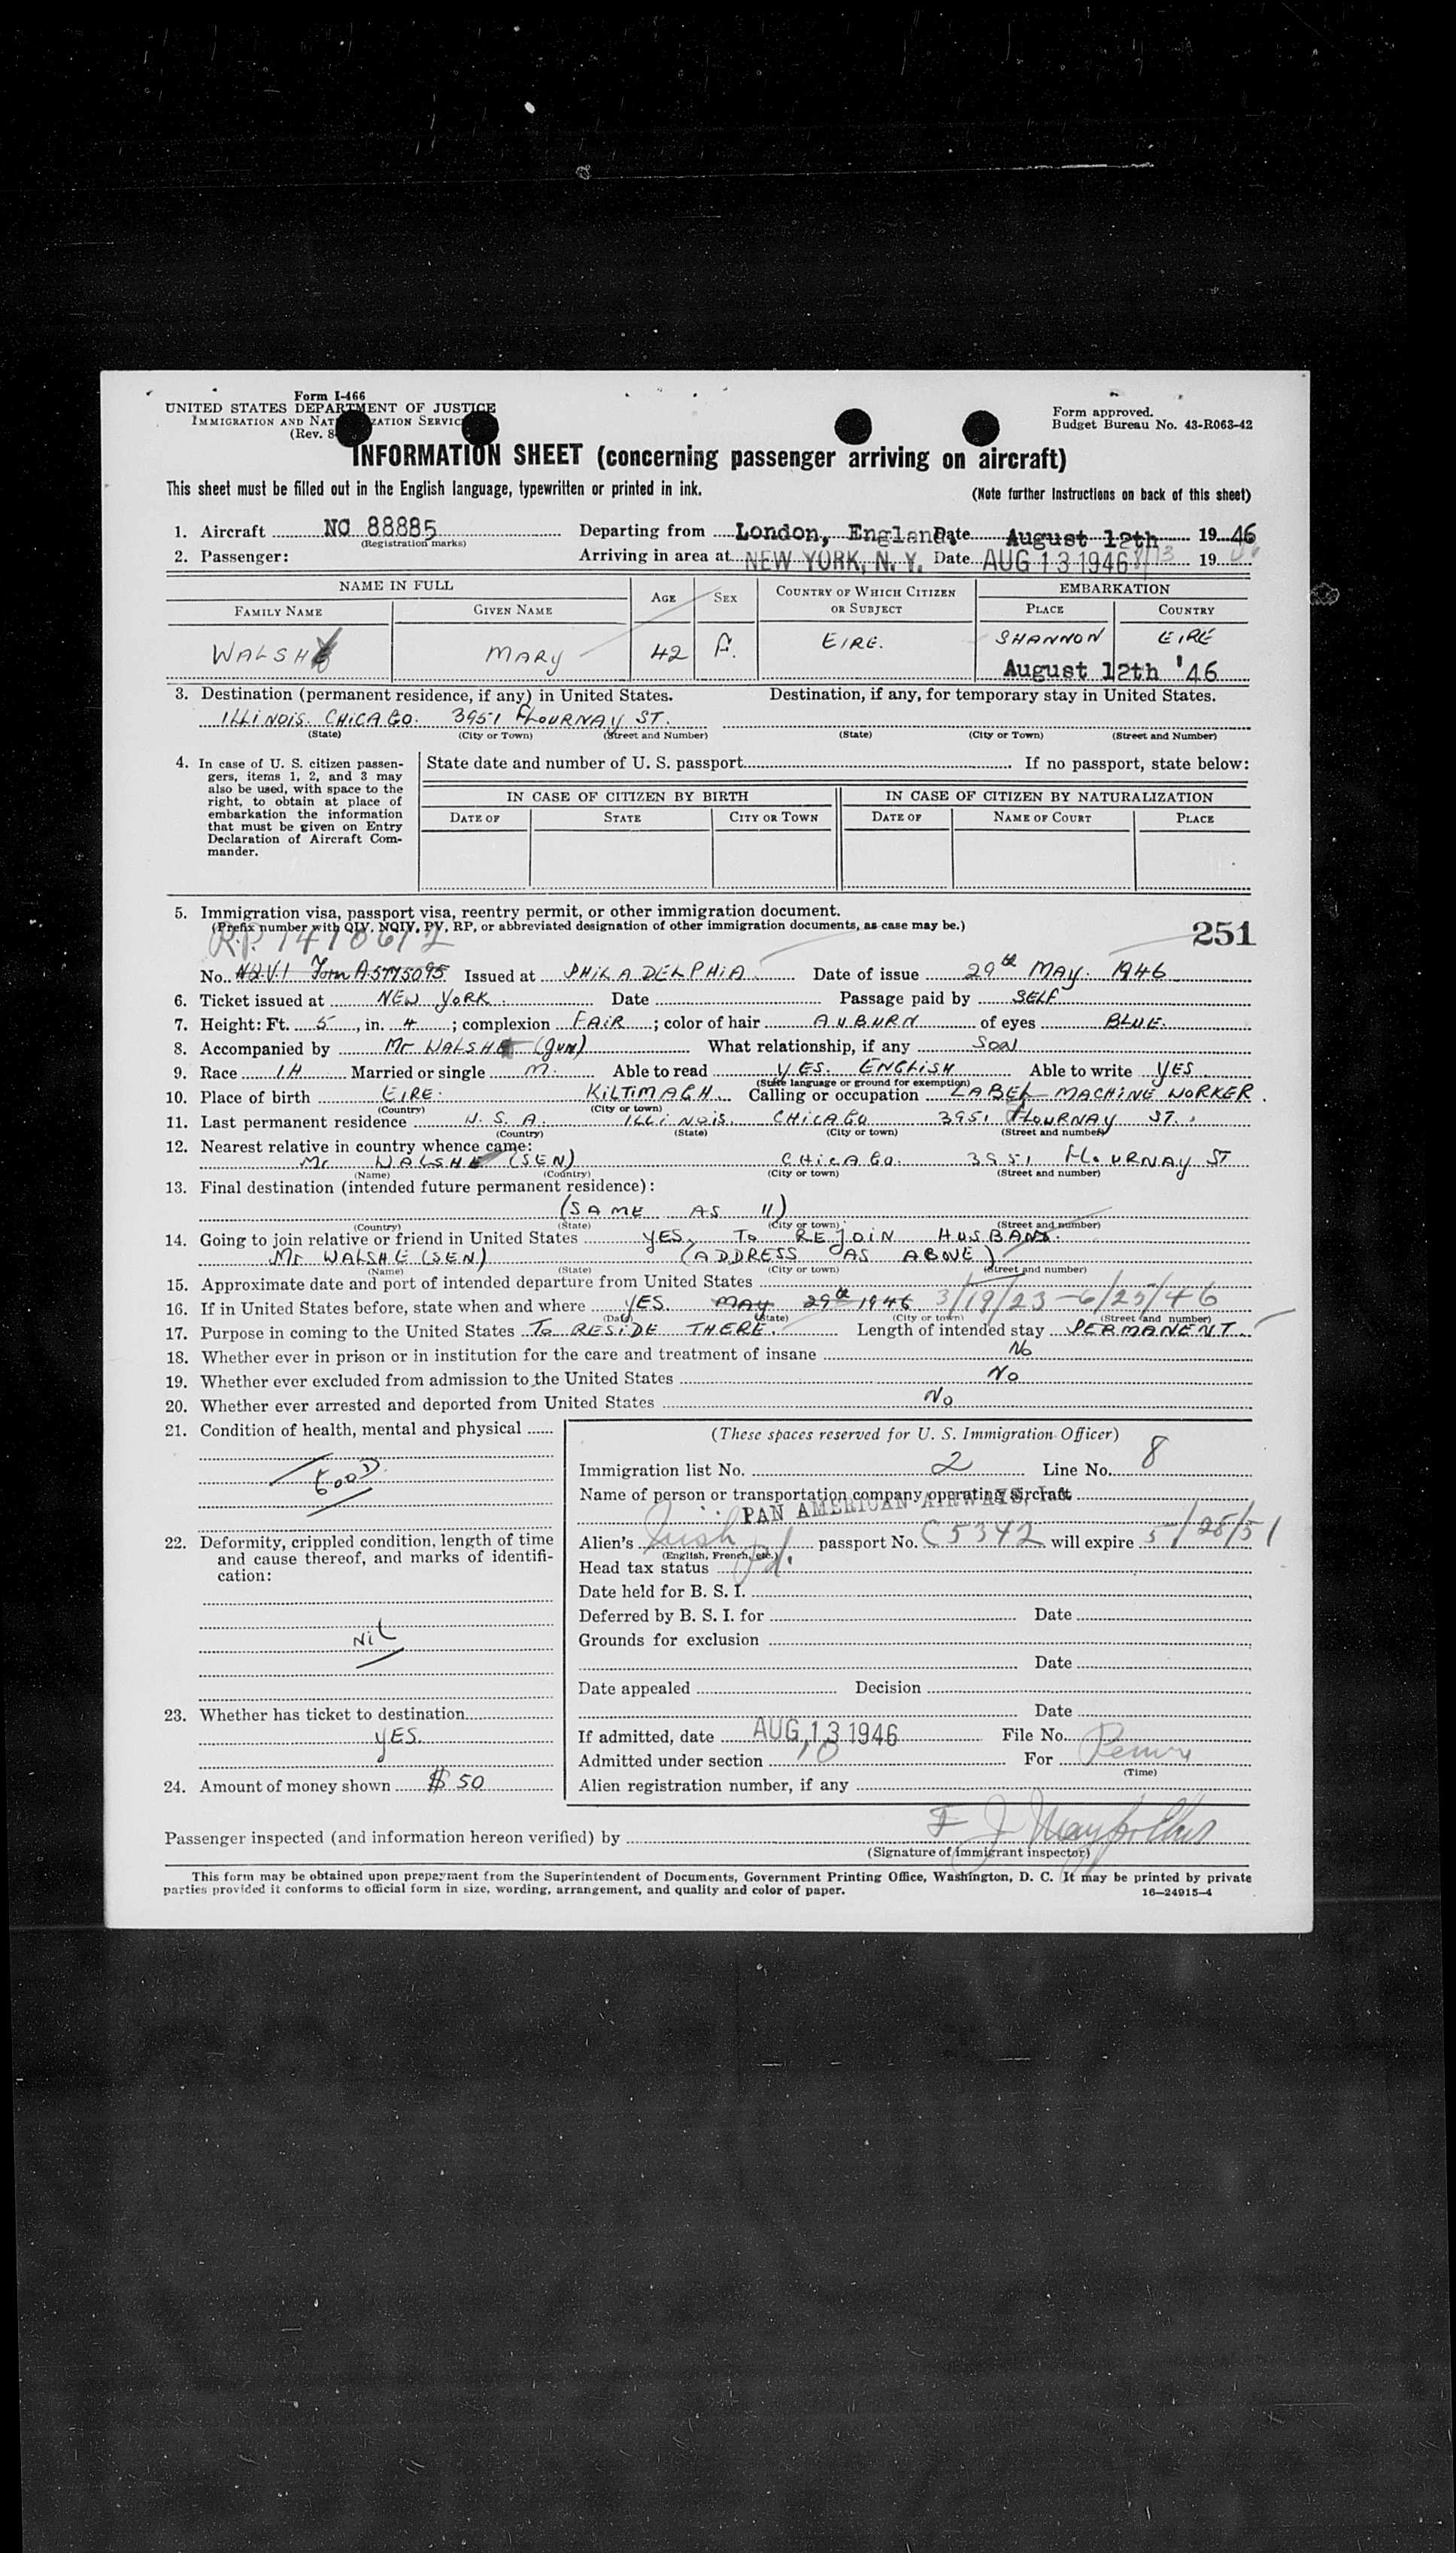 Form I-466
UNITED STATES DEPARTMENT OF JUSTICE
IMMIGRATION AND NAT ZATION SERVIC
(Rev. 8-
Form approved.
Budget Bureau No. 43-R063-42
INFORMATION SHEET (concerning passenger arriving on aircraft)
This sheet must be filled out in the English language, typewritten or printed in ink. (Note further instructions on back of this sheet)
1. Aircraft NC 88885 Departing from London, England. Date August 12th 19 46
(Registration marks)
2. Passenger: Arriving in area at NEW YORK, N. Y. Date AUG 13 1946 8/13 19 46
NAME IN FULL AGE SEX COUNTRY OF WHICH CITIZEN OR SUBJECT EMBARKATION
FAMILY NAME GIVEN NAME PLACE COUNTRY
WALSH MARY 42 F. EIRE. SHANNON EIRE
August 12th '46
3. Destination (permanent residence, if any) in United States. Destination, if any, for temporary stay in United States.
ILLINOIS. CHICAGO. 3951 FLOURNAY ST.
(State) (City or Town) (Street and Number) (State) (City or Town) (Street and Number)
4. In case of U. S. citizen passengers, items 1, 2, and 3 may also be used, with space to the right, to obtain at place of embarkation the information that must be given on Entry Declaration of Aircraft Commander.
State date and number of U. S. passport If no passport, state below:
IN CASE OF CITIZEN BY BIRTH IN CASE OF CITIZEN BY NATURALIZATION
DATE OF STATE CITY OR TOWN DATE OF NAME OF COURT PLACE
5. Immigration visa, passport visa, reentry permit, or other immigration document.
(Prefix number with QIV, NQIV, PV, RP, or abbreviated designation of other immigration documents, as case may be.)
R.P. 1418612 251
No. N.Q.V.I Form A.5775095 Issued at PHILADELPHIA Date of issue 29th MAY. 1946
6. Ticket issued at NEW YORK. Date Passage paid by SELF
7. Height: Ft. 5, in. 4; complexion FAIR; color of hair AUBURN of eyes BLUE.
8. Accompanied by Mr WALSHE (JUN) What relationship, if any SON
9. Race IH Married or single M. Able to read YES. ENGLISH Able to write YES.
(State language or ground for exemption)
10. Place of birth EIRE. KILTIMAGH. Calling or occupation LABEL MACHINE WORKER.
(Country) (City or town)
11. Last permanent residence U.S.A. ILLINOIS. CHICAGO 3951 FLOURNAY ST.
(Country) (State) (City or town) (Street and number)
12. Nearest relative in country whence came:
Mr WALSHE (SEN) CHICAGO. 3951 FLOURNAY ST
(Name) (Country) (City or town) (Street and number)
13. Final destination (intended future permanent residence):
(SAME AS 11)
(Country) (State) (City or town) (Street and number)
14. Going to join relative or friend in United States YES. TO REJOIN HUSBAND.
Mr WALSHE (SEN) (ADDRESS AS ABOVE)
(Name) (State) (City or town) (Street and number)
15. Approximate date and port of intended departure from United States
16. If in United States before, state when and where YES. MAY 29th 1946 3/19/23-6/25/46
(Date) (State) (City or town) (Street and number)
17. Purpose in coming to the United States TO RESIDE THERE. Length of intended stay PERMANENT.
18. Whether ever in prison or in institution for the care and treatment of insane No
19. Whether ever excluded from admission to the United States No
20. Whether ever arrested and deported from United States No
21. Condition of health, mental and physical
GOOD
22. Deformity, crippled condition, length of time and cause thereof, and marks of identification:
NIL
23. Whether has ticket to destination
YES.
24. Amount of money shown $ 50
(These spaces reserved for U. S. Immigration Officer)
Immigration list No. 2 Line No. 8
Name of person or transportation company operating aircraft
PAN AMERICAN AIRWAYS, Inc.
Alien's Irish passport No. C 5342 will expire 5/28/51
(English, French, etc.)
Head tax status Pd.
Date held for B. S. I.
Deferred by B. S. I. for Date
Grounds for exclusion
Date
Date appealed Decision
Date
If admitted, date AUG 13 1946 File No.
Admitted under section 10 For
(Time)
Alien registration number, if any
Passenger inspected (and information hereon verified) by
(Signature of immigrant inspector)
This form may be obtained upon prepayment from the Superintendent of Documents, Government Printing Office, Washington, D. C. It may be printed by private
parties provided it conforms to official form in size, wording, arrangement, and quality and color of paper. 16—24915-4